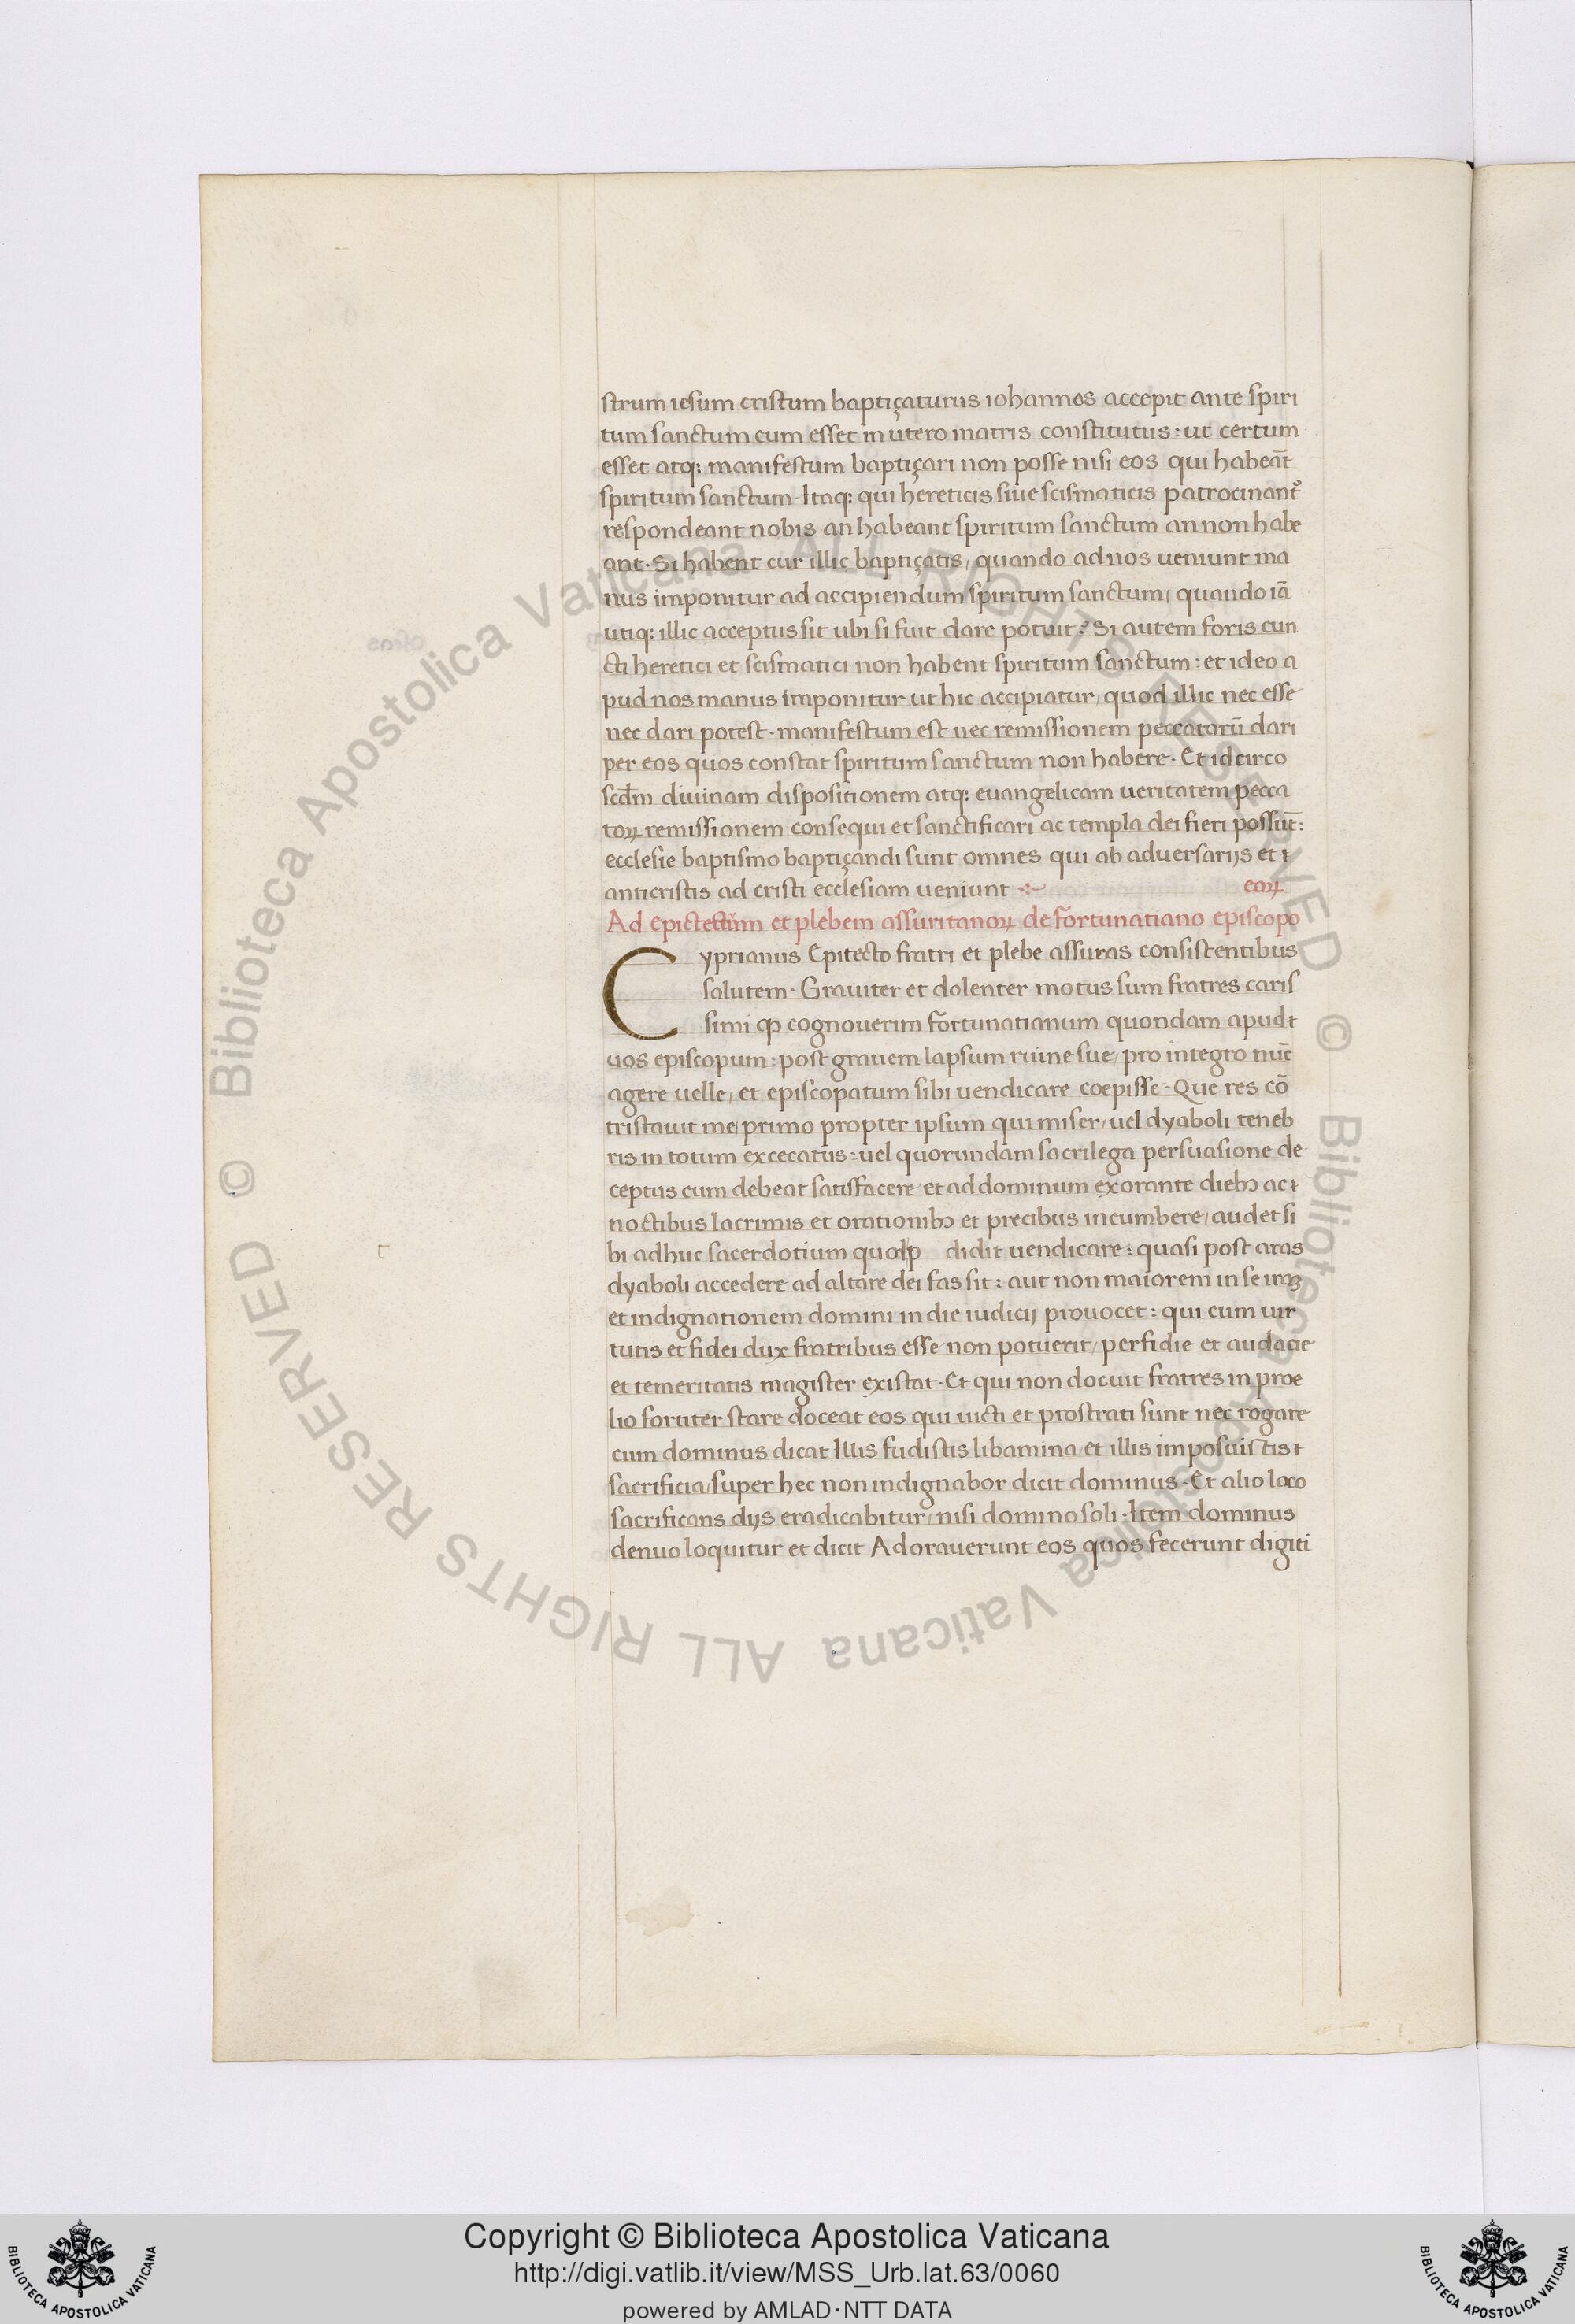 strum iesum cristum baptiçaturus iohannes accepit ante spiri
tum sanctum cum esset in utero matris constitutus : ut certum
esset atq; manifestum baptiçari non posse nisi eos qui habeāt
spiritum sanctum · Itaq; qui hereticis siue scismaticis patrocinant᷑
respondeant nobis an habeant spiritum sanctum an non habe
ant · Si habent cur illic baptiçatis / quando ad nos ueniunt ma
nus imponitur ad accipiendum spiritum sanctum / quando iā
utiq; illic acceptus sit ubi si fuit dare potuit ? Si autem foris cun
cti heretici et scismatici non habent spiritum sanctum : et ideo a
pud nos manus imponitur ut hic accipiatur / quod illic nec esse
nec dari potest · manifestum est nec remissionem peccatorū dari
per eos quos constat spiritum sanctum non habere · Et idcirco
scd̄m diuinam dispositionem atq; euangelicam ueritatem pecca
toꝝ remissionem consequi et sanctificari ac templa dei fieri possūt :
ecclesie baptismo baptiçandi sunt omnes qui ab aduersarijs et
anticristis ad cristi ecclesiam ueniunt eoꝝ
Ad epictectum et plebem assuritanoꝝ de fortunatiano episcopo
Cyprianus Epitecto fratri et plebe assuras consistentibus
salutem · Grauiter et dolenter motus sum fratres caris
simi ꝙ cognouerim fortunatianum quondam apud
uos episcopum : post grauem lapsum ruine sue / pro integro nūc
agere uelle / et episcopatum sibi uendicare coepisse · Que res cō
tristauit me / primo propter ipsum qui miser / uel dyaboli teneb
ris in totum excecatus : uel quorundam sacrilega persuasione de
ceptus cum debeat satisfacere et ad dominum exorante dieb; ac
noctibus lacrimis et orationib; et precibus incumbere / audet si
bi adhuc sacerdotium quod p didit uendicare : quasi post aras
dyaboli accedere ad altare dei fas sit : aut non maiorem in se iraꝫ
et indignationem domini in die iudicij prouocet : qui cum uir
tutis et fidei dux fratribus esse non potuerit / perfidie et audacie
et temeritatis magister existat · Et qui non docuit fratres in proe
lio fortiter stare doceat eos qui uicti et prostrati sunt nec rogare
cum dominus dicat Illis fudistis libamina / et illis imposuistis
sacrificia / super hec non indignabor dicit dominus · Et alio loco
sacrificans dijs eradicabitur / nisi domino soli · Item dominus
denuo loquitur et dicit Adorauerunt eos quos fecerunt digiti
© Biblioteca Apostolica Vaticana ALL RIGHTS RESERVED
© Biblioteca Apostolica Vaticana ALL RIGHTS RESERVED
Copyright © Biblioteca Apostolica Vaticana
http://digi.vatlib.it/view/MSS_Urb.lat.63/0060
powered by AMLAD·NTT DATA
BIBLIOTECA APOSTOLICA VATICANA
BIBLIOTECA APOSTOLICA VATICANA